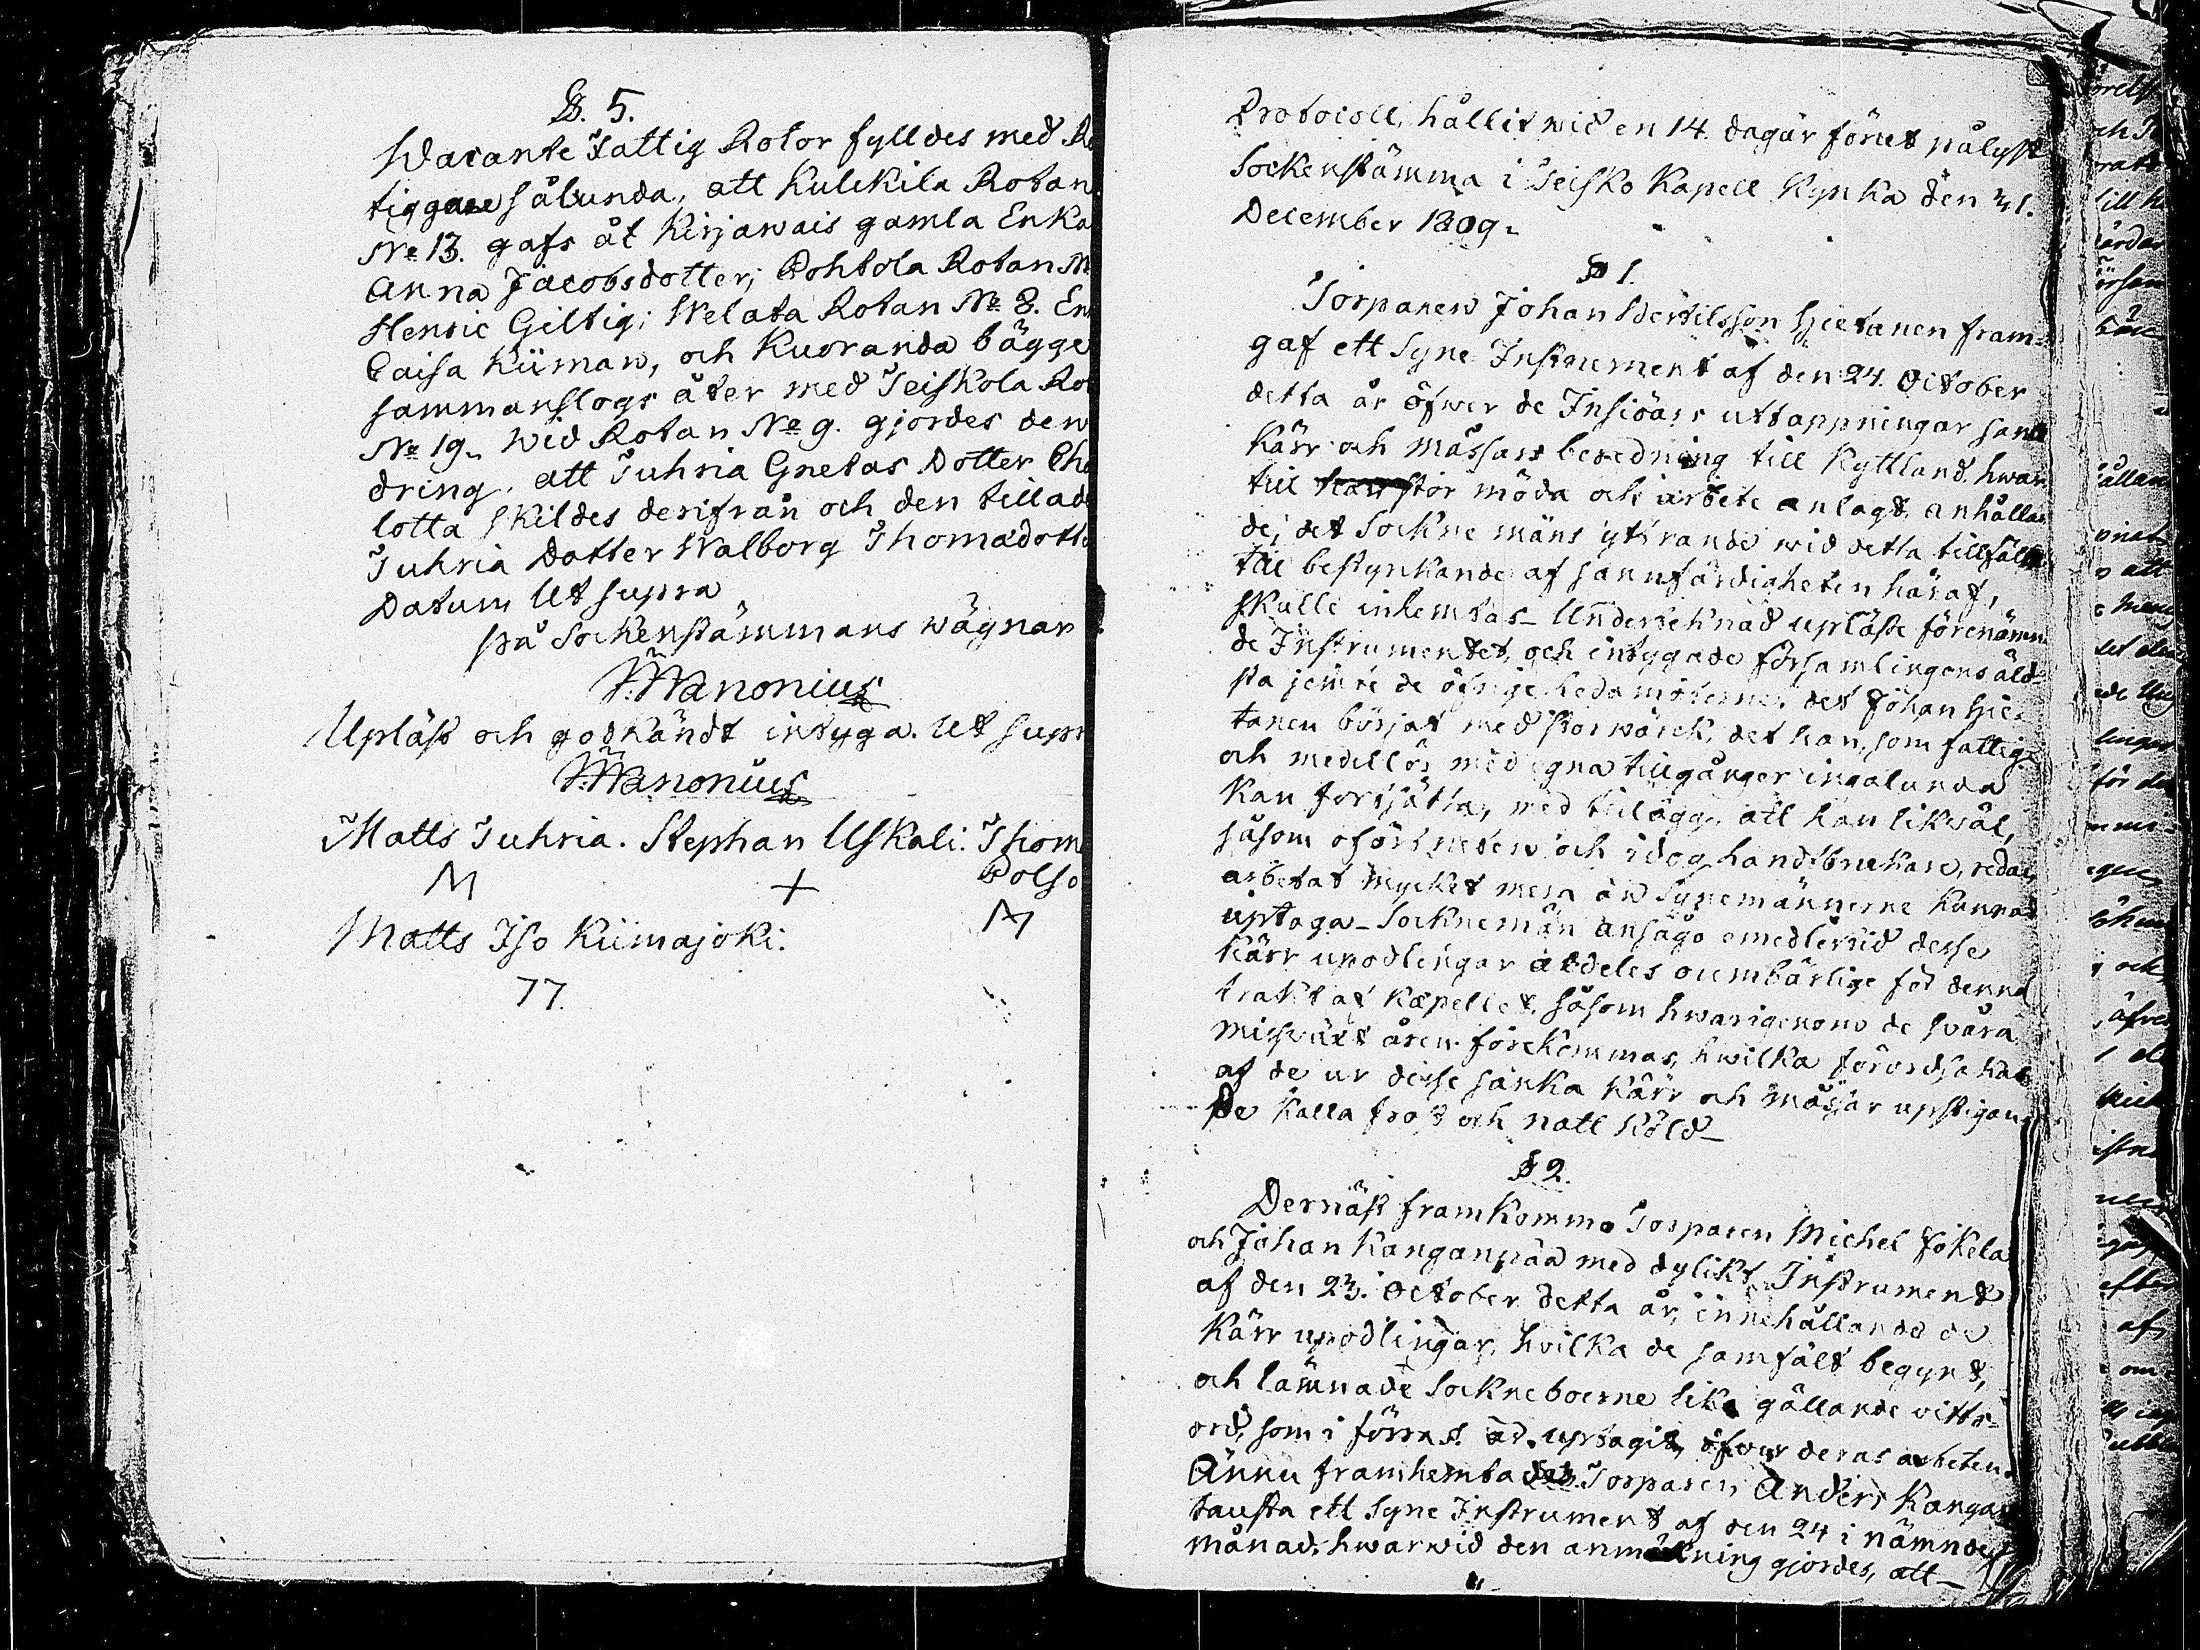 §. 5.
Wacante Fattig Rotor fylldes med Ro
tiggare sålunda, att Kulckila Rotan
No 13. gafs åt Kirjawais gamla Enka
Anna Jacobsdotter; Pohtola Rotan N
Henric Giltig; Welata Rotan No 8. En
Caisa Kiiman, och Kuoranda bägge
sammanslogs åter med Teiskola Ro
No 19. Wid Rotan No 9. gjordes den
dring, att Juhria Gretas Dotter Cha
lotta skildes derifrån och den tillade
Juhria Dotter Walborg Thomædotte
Datum Ut supra
på Sockenstämmans wägnar
Wanonius
Upläst och godkändt intyga. Ut supr
Wanonius
Matts Juhria. Stephan Uskali: Thom
M + Polso
Matts Iso Kiimajoki: M
77.
Protocoll, hållit wid en 14. dagar förut pålyst
Sockenstämma i Teisko Kapell Kyrka den 31.
December 1809.
§ 1.
Torparen Johan Bertilsson Hietanen fram-
gaf ett Syne Instrument af den 24. October
detta år öfwer de Insiöars uttappningar samt
Kärr och Måssars beredning till Kyttland, hwar
till stor möda och arbete anlagt, anhållan
de, det Sockne mäns yttrande wid detta tillfälle
till bestyrkande af sannfärdigheten häraf,
skulle inhemtas_ Undertecknad upläste förenämn
de Instrumentet, och intygade församlingens äld-
sta jemte de öfrige ledamöterne, det Johan Hie-
tanen börjat med stor wärck, det han, som fattig
och medellös med egna tillgångar ingalunda
kan fortsätta, med tillägg, att han likwäl,
såsom oförtruten och idog handtbrukare, redan
arbetat mycket mera än Synemännerne kunnat
uptaga_ Socknemän ansågo emedlertid desse
Kärr upodlingar aldeles oumbärlige för denna
trakt af Kapellet, såsom hwarigenom de svåra
misswäxt åren förekommas, hwilka förordsakas
af de ur desse sanka Kärr och måssar upstigan
de kalla frost och natt köld_
§ 2.
Dernäst framkommo Torparen Michel Jokela
och Johan Kanganpää med dylikt Instrument
af den 23. October detta år, innehållande de
Kärr upodlingar, hvilka de samfält begynt,
och lämnade Sockneboerne lika gällande vitts-
ord, som i förra §. är uptagit, öfwer deras arbeten.
Ännu framhemtade Torparen Anders Kangan
tausta ett Syne Instrument af den 24 i nämnde
månad, hwarwid den anmärkning gjordes, att_